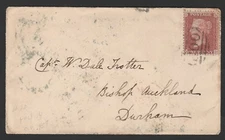 Capt. W. Dale Trotter
Bishop Auckland
Durham